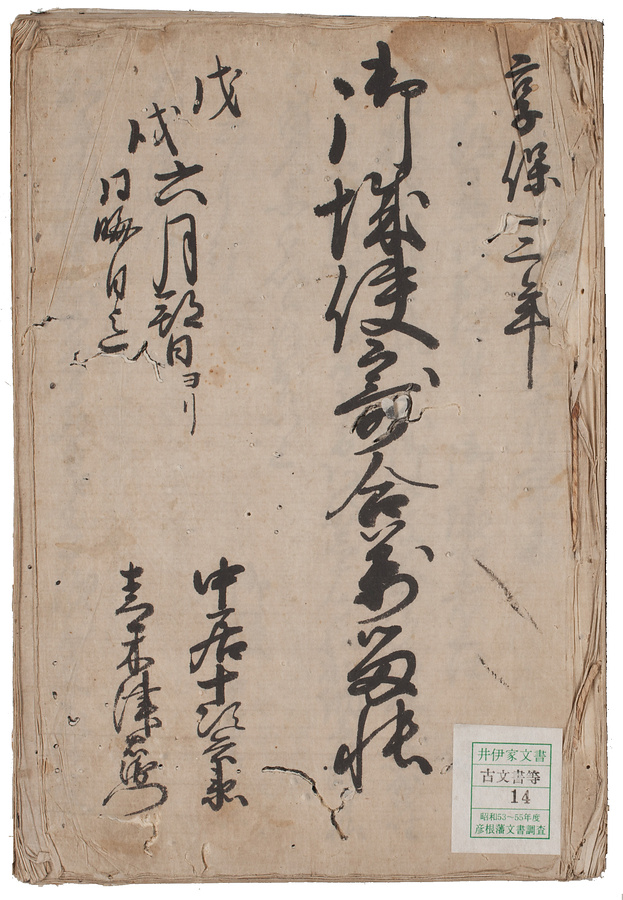 享保三年
御城使寄合万留帳
戊
戌六月朔日ヨリ
同晦日迄
中居十次兵衛
青木津右衛門
井伊家文書
古文書等
14
昭和53~55年度
彦根藩文書調査